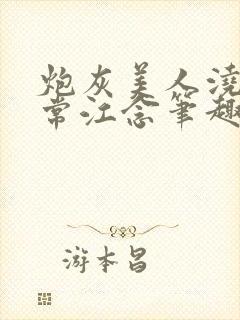 炮灰美人浇
常江念笔趣
游本昌